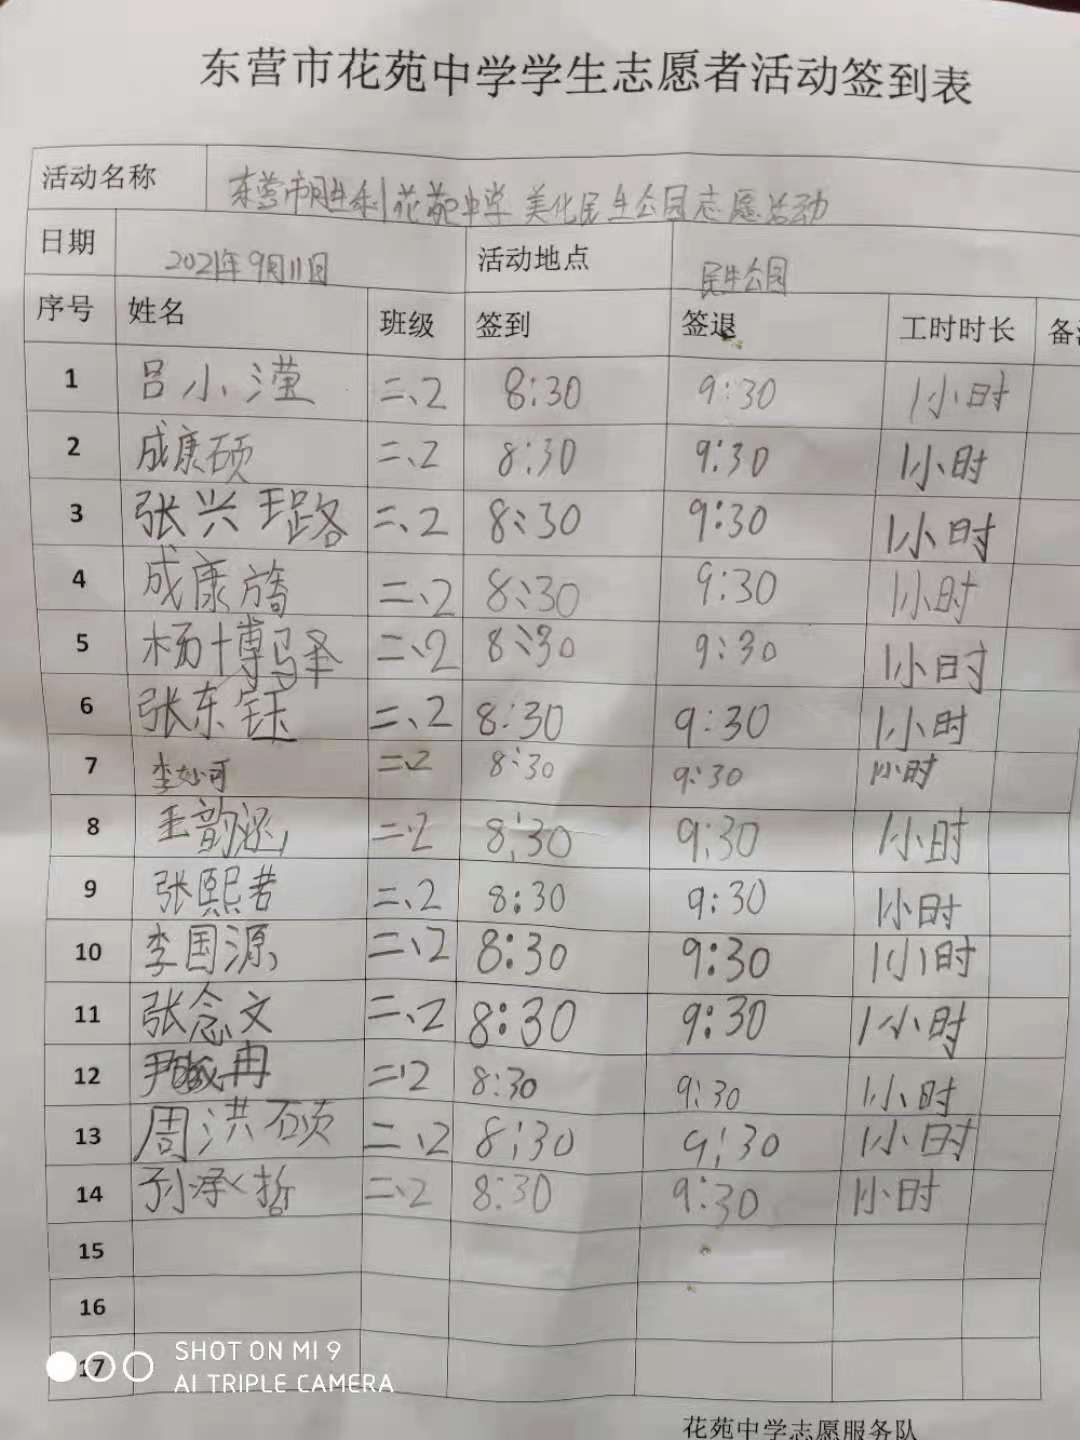 东营市花苑中学学生志愿者活动签到表
活动名称 东营市胜利花苑中学美化民生公园志愿活动
日期 2021年9月11日 活动地点 民生公园
序号 姓名 班级 签到 签退 工时时长 备
1 吕小滢 二、2 8:30 9:30 1小时
2 成康硕 二、2 8:30 9:30 1小时
3 张兴璐 二、2 8:30 9:30 1小时
4 成康旖 二、2 8:30 9:30 1小时
5 杨博译 二、2 8:30 9:30 1小时
6 张东钰 二、2 8:30 9:30 1小时
7 李妙可 二、2 8:30 9:30 1小时
8 王韵涵 二、2 8:30 9:30 1小时
9 张熙若 二、2 8:30 9:30 1小时
10 李国源 二、2 8:30 9:30 1小时
11 张念文 二、2 8:30 9:30 1小时
12 尹冉 二、2 8:30 9:30 1小时
13 周洪硕 二、2 8:30 9:30 1小时
14 孙承哲 二、2 8:30 9:30 1小时
15
16
17
SHOT ON MI 9
AI TRIPLE CAMERA
花苑中学志愿服务队